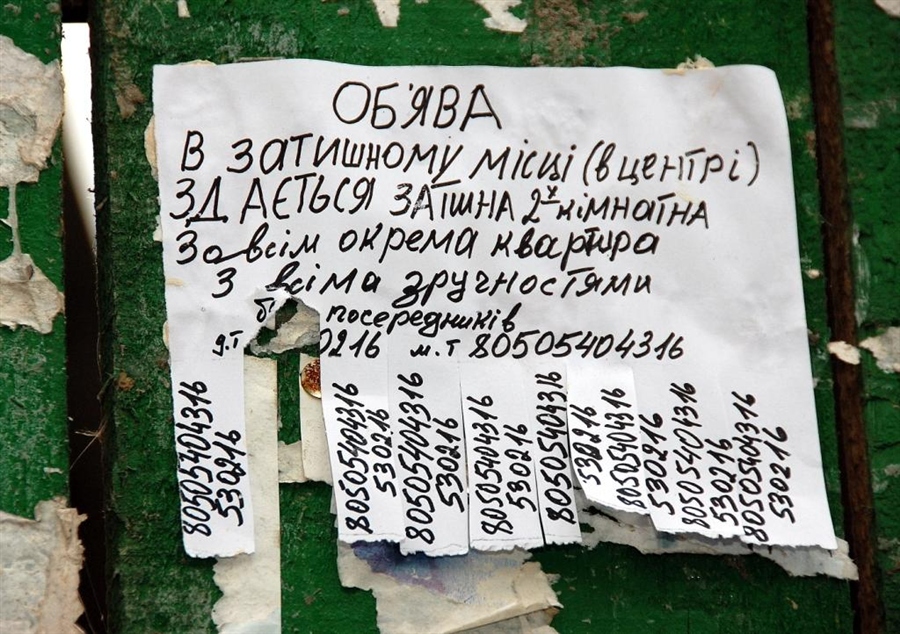 ОБ'ЯВА
В ЗАТИШНОМУ МІСЦІ (В ЦЕНТРІ)
ЗДАЄТЬСЯ ЗАТІШНА 2х кімнатна
Зовсім окрема квартира
З всіма зручностями
посередників
д.т 0216 м.т 80505404316
80505404316
530216
80505404316
530216
80505404316
530216
80505404316
530216
80505404316
530216
80505404316
530216
80505404316
530216
80505404316
530216